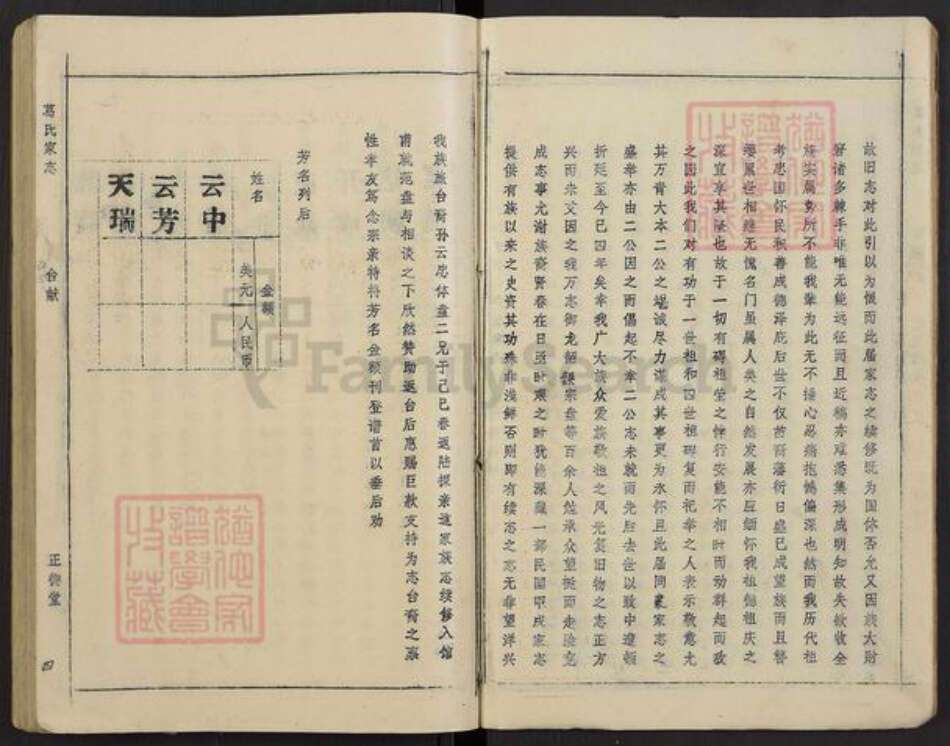 故旧志对此引以为恨而此届家志之续修既为国体否允又因族大财
窘诸多棘手非唯无能远征而且近稿亦难悉集形成明知故失欲收全
族实属势所不能我辈为此无不捶心忍痛抱憾偏深也然而我历代祖
考忠国怀民积善成德泽庇后世不仅苗裔藩衍日盛已成望族而且簪
缨累世相继无愧名门虽属人类之自然发展亦应缅怀我祖德祖庆之
深宜享其隆也故于一切有碍祖茔之悖行安能不相时而动群起而攻
之因此我们对有功于一世祖和四世祖碑复而祀举之人表示敬意尤
其万青大本二公之竭诚尽力谋成其事更为永怀且此届同录家志之
盛举亦由二公因之而倡起不幸二公志未就而先后去世以致中道顿
折延至今已四年矣幸我广大族众爱族敬祖之风光复旧物之志正方
兴而未艾因之我万志御龙绍骥宗盘等百余人兢承众望挺而走险克
成志事尤谢族裔贤春在日亟时艰之时犹能深藏一部民国甲戌家志
提供有族以来之史资其功殊非浅鲜否则即有续志之志无非望洋兴
我族旅台裔孙云忠体盘二兄于己巳春返陆探亲适家族志续修入馆
甫就范盘与相谈之下欣然赞助返台后惠赐巨款支持为志台裔之
性孝友笃念宗亲特将芳名金额刊登谱首以垂后劝
芳名列后
姓名
金额
美元
人民币
云中
云芳
天瑞
葛氏家志
台献
正伦堂
四
FamilySearch